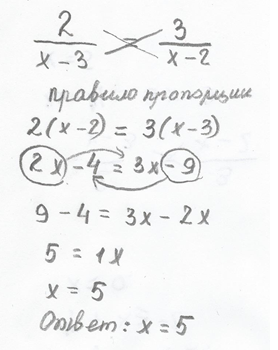 2/(x-3) = 3/(x-2)
правило пропорции
2(x-2) = 3(x-3)
2x-4 = 3x-9
9-4 = 3x-2x
5 = 1x
x = 5
Ответ: x = 5